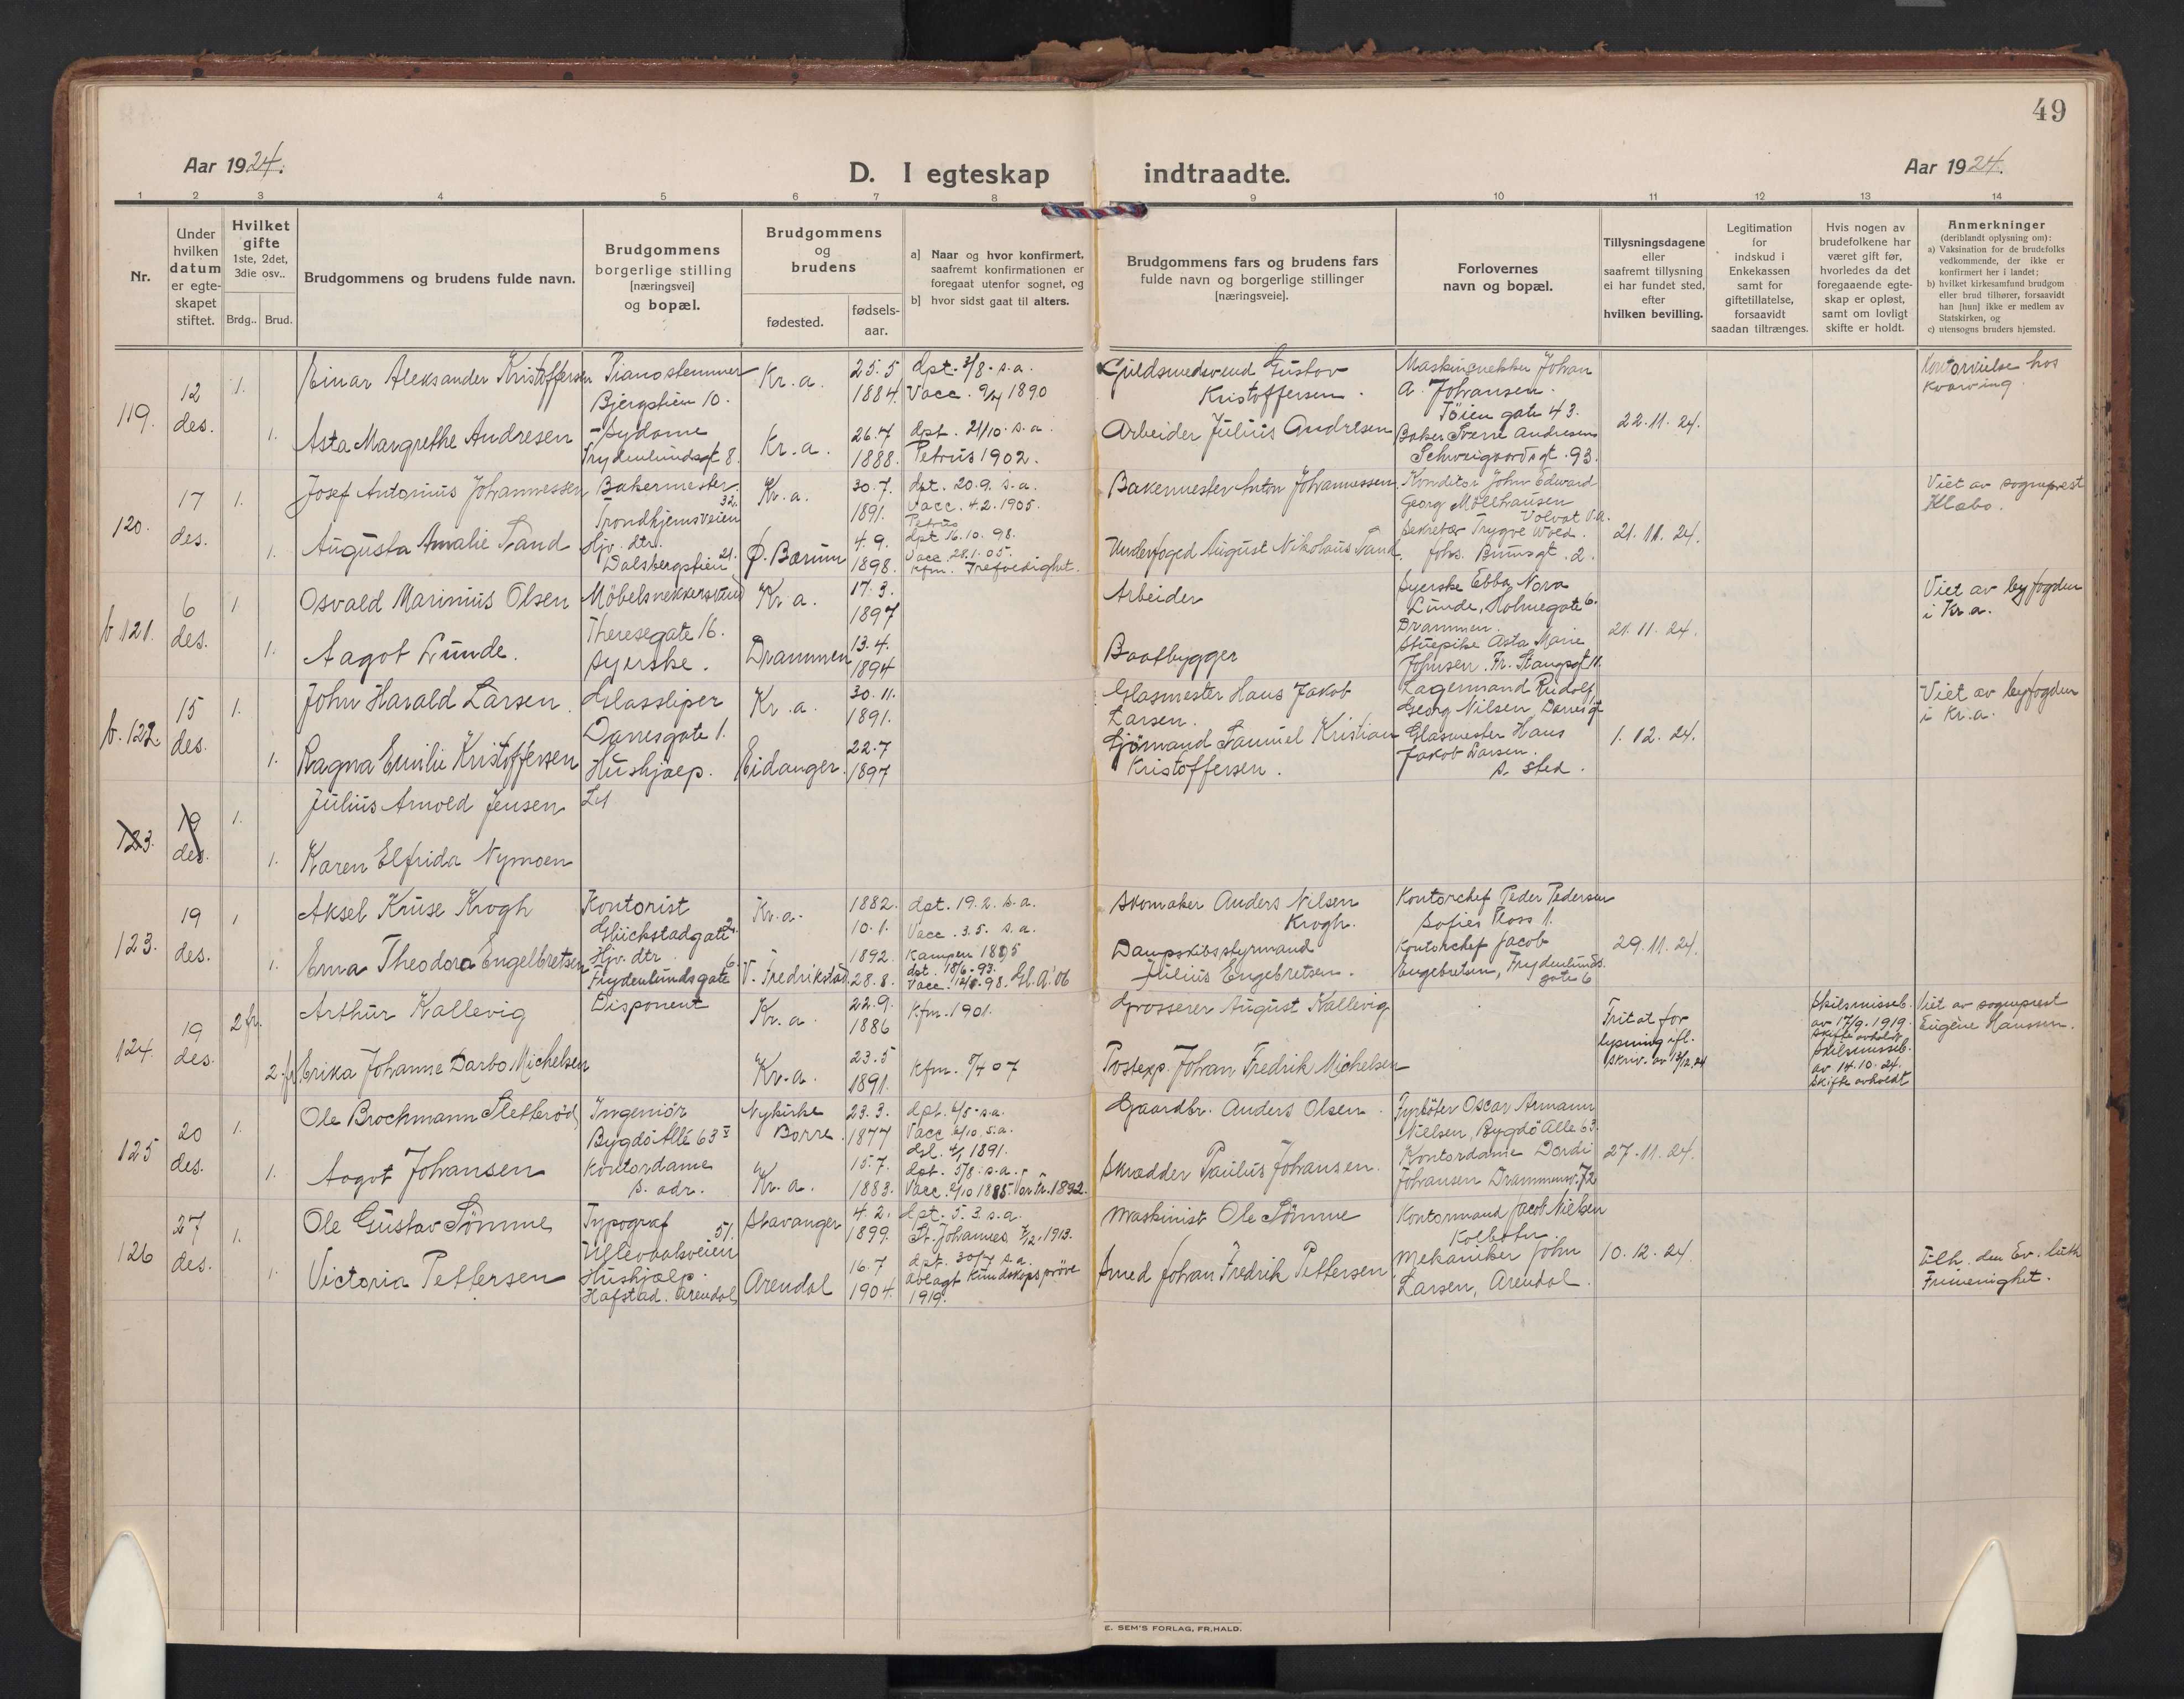 49
Aar 1924.
D. I egteskap indtraadte.
Aar 1924.
1 2 3 4 5 6 7 8 9 10 11 12 13 14
Nr.
Under hvilken datum er egteskapet stiftet.
Hvilket gifte 1ste, 2det, 3die osv..
Brdg.. Brud.
Brudgommens og brudens fulde navn.
Brudgommens borgerlige stilling [næringsvei] og bopæl.
Brudgommens og brudens
fødested.
fødselsaar.
a] Naar og hvor konfirmert, saafremt konfirmationen er foregaat utenfor sognet, og
b] hvor sidst gaat til alters.
Brudgommens fars og brudens fars fulde navn og borgerlige stillinger [næringsveie].
Forlovernes navn og bopæl.
Tillysningsdagene eller saafremt tillysning ei har fundet sted, efter hvilken bevilling.
Legitimation for indskud i Enkekassen samt for giftetillatelse, forsaavidt saadan tiltrænges.
Hvis nogen av brudefolkene har været gift før, hvorledes da det foregaaende egteskap er opløst, samt om lovligt skifte er holdt.
Anmerkninger
(deriblandt oplysning om):
a) Vaksination for de brudefolks vedkommende, der ikke er konfirmert her i landet;
b) hvilket kirkesamfund brudgom eller brud tilhører, forsaavidt han [hun] ikke er medlem av Statskirken, og
c) utensogns bruders hjemsted.
119. 12 des. 1.
Einar Aleksander Kristoffersen
Pianostemmer
Bjergstien 10.
Kr.a.
25.5
1884.
dpt. 3/8 s.a.
Vacc. 9/4 1890
Guldsmedsvend Gustav
Kristoffersen.
Maskinsnekker Johan
A. Johansen.
Tøien gate 43.
Kontorvielse hos
Kvarving.
1.
Asta Margrethe Andresen
Sydame
Frydenlundsgt 8.
Kr.a.
26.7
1888.
dpt. 21/10 s.a.
Petrus 1902.
Arbeider Julius Andresen
Baker Sverre Andresen
Schweigaardsgt. 93.
22.11.24.
120. 17 des. 1.
Josef Antonius Johannessen
Bakermester
Trondhjemsveien 32.
Kr.a.
30.7.
1891.
dpt. 20.9. s.a.
Vacc. 4.2.1905.
Petrus
Bakermester Anton Johannessen
Konditor John Edward
Georg Möllhausen
Volvat V.a.
Viet av sogneprest
Klabo.
1.
Augusta Amalie Sand
Hjv. dtr.
Dalsbergstien 21.
Ø. Bærum
4.9.
1898.
dpt 16.10.98.
Vacc. 28.1.05.
Kfm. Trefoldighet.
Underfoged August Nikolaus Sand.
Sekretær Trygve Wold.
Johs. Brunsgt. 2.
21.11.24.
b 121. 6 des. 1
Osvald Marinius Olsen
Möbelsnekkersvend
Theresegate 16.
Kr.a.
17.3.
1897
Arbeider
Syerske Ebba Nora
Lunde, Holmegate 6.
Drammen.
Viet av byfogden
i Kr.a.
1.
Aagot Lunde.
Syerske.
Drammen
13.4.
1894
Baatbygger
Stuepike Asta Marie
Johnsen. Fr. Stangsgt 11.
21.11.24.
b. 122. 15 des. 1.
John Harald Larsen.
Glassliper
Danesgate 1.
Kr.a.
30.11.
1891.
Glasmester Hans Jakob
Larsen.
Lagermand Rudolf
Georg Nilsen, Danesgt 1
Viet av byfogden
i Kr.a.
1.
Ragna Emilie Kristoffersen
Hushjælp.
Eidanger.
22.7
1897
Sjömand Samuel Kristian
Kristoffersen.
Glasmester Hans
Jakob Larsen.
s. sted.
1.12.24.
123. 19 des. 1.
Julius Arnold Jensen
1.
Karen Elfrida Nymoen
123. 19 des. 1
Aksel Kruse Krogh
Kontorist
Glückstadgate 2.
Kr.a.
1882.
10.1.
dpt. 19.2. s.a.
Vacc. 3.5. s.a.
Skomaker Anders Nilsen
Krogh.
Kontorchef Peder Pedersen
Sofies Plass 1.
1.
Erna Theodora Engelbretsen
Hjv. dtr
Frydenlundsgate 6.
V. Fredrikstad
1892.
28.8.
Kampen 1885
dpt. 18/6-93.
Vacc. 12/8.98. Gl.A.'06
Dampskibsstyrmand
Julius Engebretsen.
Kontorchef Jacob
Engebretsen, Frydenlunds
gate 6
29.11.24.
124. 19 des. 2 fr.
Arthur Kallevig
Disponent
Kr.a.
22.9.
1886
Kfm. 1901.
Grosserer August Kallevig
Fritat for
lysning ifl.
skriv. av 13/12.24
Skilsmisseb.
av 17/9.1919.
Skifte avholdt
Viet av sogneprest
Eugène Hanssen.
2 fr.
Erika Johanne Darbo Michelsen
Kr.a.
23.5
1891.
Kfm. 8/4 07
Postexp. Johan Fredrik Michelsen
Skilsmisseb.
av 14.10.24.
Skifte avholdt
125 20 des. 1.
Ole Brochmann Sletteröd
Ingeniör
Bygdö Allé 63 II
Nykirke
Borre.
23.3.
1877
dpt. 6/5 s.a.
Vacc. 2/10 s.a.
dsl. 4/1 1891.
Gaardbr. Anders Olsen.
Fyrböter Oscar Armann
Nielsen, Bygdö Alle 63.
1.
Aagot Johansen
Kontordame
s. adr.
Kr.a.
15.7.
1883.
dpt. 5/8. s.a.
Vacc. 2/10 1885. Var Fr. 1892.
Skrædder Paulus Johansen.
Kontordame Dordi
Johansen Drammensv. 72
27.11.24.
126 27 des. 1.
Ole Gustav Sömme
Typograf
Ullevaalsveien 51.
Stavanger
4.2.
1899.
dpt. 5.3. s.a.
St. Johannes 7/12.1913.
Maskinist Ole Sömme
Kontormand Jacob Nielsen
Kolbotn.
1.
Victoria Pettersen
Hushjælp.
Hafstad. Arendal
Arendal
16.7
1904.
dpt. 30/7 s.a.
Avlagt Kundskapsprøve
1919.
Smed Johan Fredrik Pettersen
Mekaniker John
Larsen, Arendal.
10.12.24.
tilh. den Ev. luth
Frimenighet.
E. SEM'S FORLAG, FR.HALD.